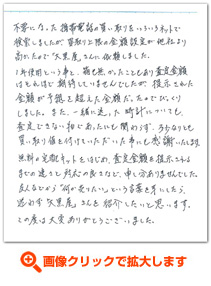 不要になった携帯電話の買い取りをいろいろネットで
検索しましたが、買取り上限の金額設定が他社より
高かったので「大黒屋」さんに依頼しました。
1年使用という事と、箱も無かったこともあり査定金額
はそれほど期待していませんでしたが、提示された
金額が予想を超えた金額だったのでびっくり
しました。また、一緒に送った時計についても、
査定できない物であったにも関わらず、多少なりとも
買い取り値を付けていただいた事にも感謝いたします。
無料の宅配キットをはじめ、査定金額を提示される
までの速さと対応の良さなど、申し分ありませんでした。
友人などから「何か売りたい」という言葉を耳にしたら、
迷わず「大黒屋」さんを紹介したいと思います。
この度は大変ありがとうございました。
画像クリックで拡大します